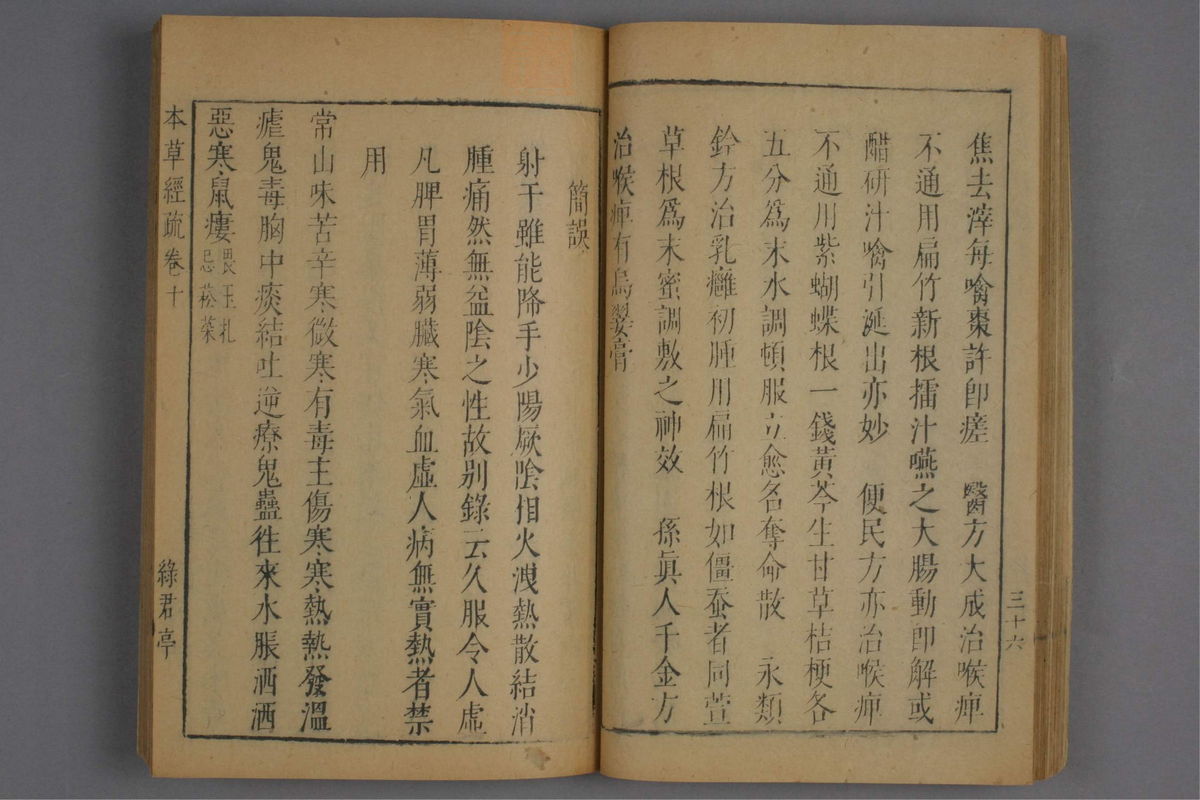 焦去滓每噙棗許卽瘥　醫方大成治喉痺
不通用扁竹新根擂汁嚥之大腸動卽解或
醋硏汁噙引涎出亦妙　便民方亦治喉痺
不通用紫蝴蝶根一錢黃芩生甘草桔梗各
五分爲末水調頓服立愈名奪命散　永類
鈐方治乳癰初腫用扁竹根如僵蚕者同萱
草根爲末蜜調敷之神效　孫眞人千金方
治喉痺有烏翣膏
三十六
簡誤
射干雖能降手少陽厥陰相火洩熱散結消
腫痛然無益陰之性故别錄云久服令人虛
凡脾胃薄弱臟寒氣血虛人病無實熱者禁
用
常山味苦辛寒微寒有毒主傷寒寒熱熱發溫
瘧鬼毒胸中痰結吐逆療鬼蠱徃來水脹洒洒
惡寒鼠瘻畏玉札忌菘菜
本草經疏卷十
綠君亭